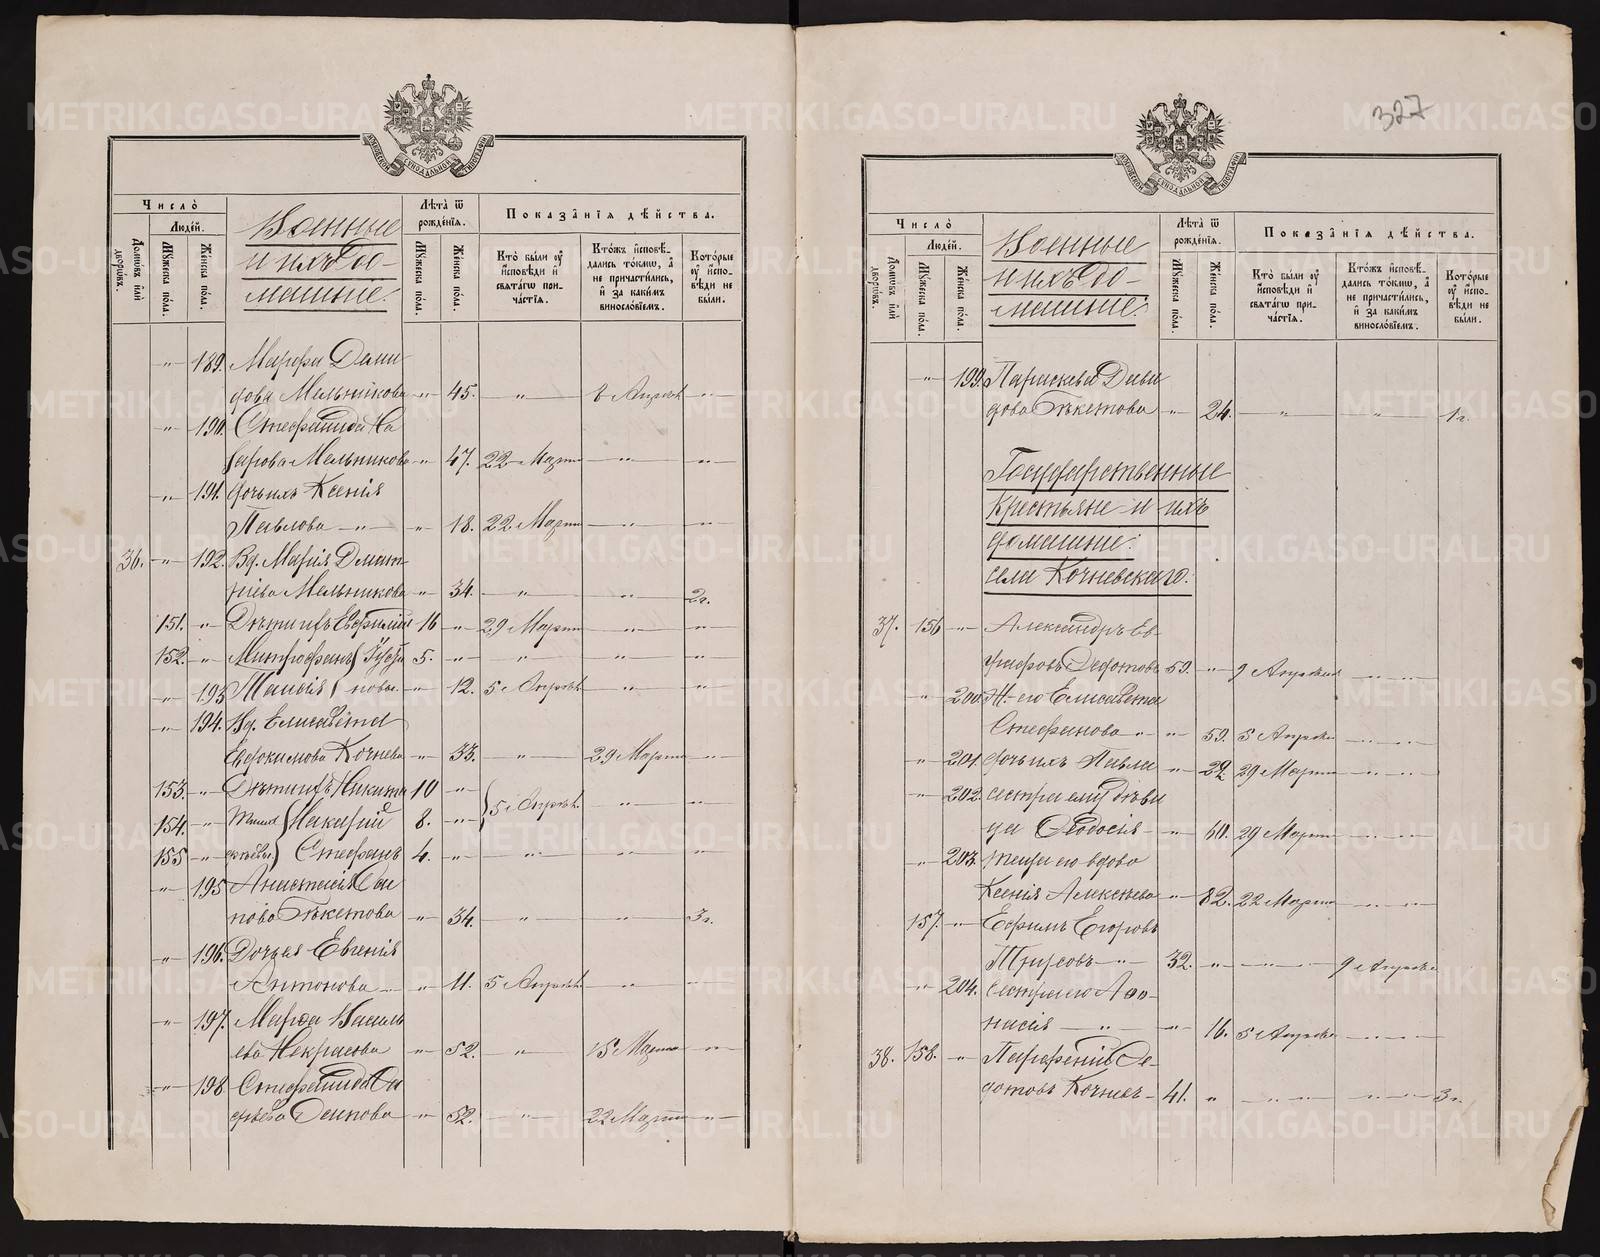 327
МОСКОВСКОЙ СѴНОДАЛЬНОЙ ТИПОГРАФІИ
Число̀
Люде́й.
Домѡ́въ и҆лѝ дворѡ́въ.
Мꙋ́жеска по́ла.
Же́нска по́ла.
Военные
и ихъ до-
машніе.
Лѣ́та ѿ рожде́нїѧ.
Мꙋ́жеска по́ла.
Же́нска по́ла.
Показа̑нїѧ дѣ́йства.
Кто̀ бы́ли ᲂу҆ и҆сповѣ́ди и҆ свѧта́гѡ прича́стїѧ.
Кто́жъ и҆сповѣ́дались то́кмѡ, а҆ не причасти́лись, и҆ за каки́мъ винослові́емъ.
Кото́рые ᲂу҆ и҆сповѣ́ди не бы́ли.
-"- 189. Марѳа Деми
дова Мельникова -"- 45. -"- 8 Апрѣля -"-
-"- 190. Стефанида На
зарова Мельникова -"- 47. 22 Марта -"- -"-
-"- 191. дочь ихъ Ксенія
Павлова -"- -"- 18. 22 Марта -"- -"-
36. -"- 192. Вд. Марія Димит
ріева Мельникова -"- 34. -"- -"- 2г.
151. -"- Дѣти ихъ Евфимій 16 -"- 29 Марта -"- -"-
152. -"- Митрофанъ 5. -"- -"- -"- -"-
-"- 193 Таисія -"- 12. 5 Апрѣля -"- -"-
-"- 194. Вд. Елисавета
Евдокимова Кочнева -"- 33. -"- 29 Марта -"-
153. -"- Дѣти ихъ Никита 10 -"- 5 Апрѣля -"- -"-
154. -"- Макарій 8. -"-
155 -"- Стефанъ 4. -"- -"- -"- -"-
-"- 195 Анастасія
Бѣкетова -"- 34. -"- -"- 3г.
-"- 196. Дочь ея Евгенія
Антонова -"- -"- 11. 5 Апрѣля -"- -"-
-"- 197. Марѳа Василь
ева Некрасова -"- 52. -"- 15 Марта -"-
-"- 198 Стефанида
Осипова -"- 52. -"- 22 Марта -"-
МОСКОВСКОЙ СѴНОДАЛЬНОЙ ТИПОГРАФІИ
Число̀
Люде́й.
Домѡ́въ и҆лѝ дворѡ́въ.
Мꙋ́жеска по́ла.
Же́нска по́ла.
Военные
и ихъ до-
машніе.
Лѣ́та ѿ рожде́нїѧ.
Мꙋ́жеска по́ла.
Же́нска по́ла.
Показа̑нїѧ дѣ́йства.
Кто̀ бы́ли ᲂу҆ и҆сповѣ́ди и҆ свѧта́гѡ прича́стїѧ.
Кто́жъ и҆сповѣ́дались то́кмѡ, а҆ не причасти́лись, и҆ за каки́мъ винослові́емъ.
Кото́рые ᲂу҆ и҆сповѣ́ди не бы́ли.
-"- 199. Параскева Дави
дова Бѣкетова -"- 24. -"- -"- 1г.
Государственные
крестьяне и ихъ
домашніе.
села Кочневскаго.
37. 156 -"- Александръ Ев
графовъ Федотовъ 59. -"- 9 Апрѣля -"- -"-
-"- 200. Ж. его Елисавета
Стефанова -"- -"- 59. 5 Апрѣля -"- -"-
-"- 201. дочь ихъ Павла -"- 22. 29 Марта -"- -"-
-"- 202. сестра ему дѣви
ца Ѳеодосія -"- 60. 29 Марта -"- -"-
-"- 203. теща его вдова
Ксенія Алексѣева -"- 82. 22 Марта -"- -"-
157. -"- Ефимъ Егоровъ
-"- 32. -"- -"- 9 Апрѣля
-"- 204. сестра его Аѳа-
насія -"- -"- 16. 5 Апрѣля -"- -"-
38. 158. -"- Парфеній Ѳе-
дотовъ Кочневъ 41. " -"- -"- 3г.
METRIKI.GASO-URAL.RU